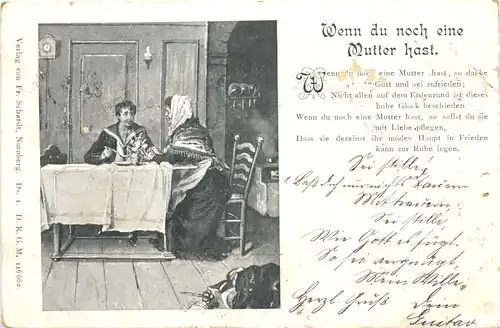 Wenn du noch eine
Mutter hast.
Wenn du noch eine Mutter hast, so danke
Gott und sei zufrieden;
Nicht allen auf dem Erdenrund ist dieses
hohe Glück beschieden.
Wenn du noch eine Mutter hast, so sollst du sie
mit Liebe pflegen,
Dass sie dereinst ihr müdes Haupt in Frieden
kann zur Ruhe legen.
Sei stille!
Laß dich nur nichts dauern
Mit trauern,
Sei stille
Wie Gott es fügt,
So sei vergnügt,
Mein Wille
Herzl. Gruß Dein
Gustav
Verlag von Fr. Schardt, Nürnberg. Ds. 1. D. R. G. M. 116662.